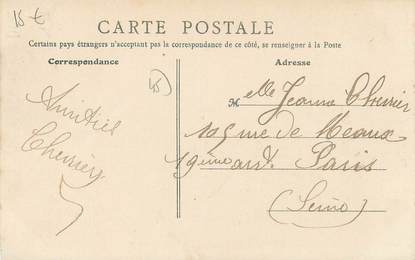 15 €
CARTE POSTALE
Certains pays étrangers n'acceptant pas la correspondance de ce côté, se renseigner à la Poste
Correspondance
Adresse
Amitié
Cherrier
15
Melle Jeanne Cherrier
109 rue de Meaux
19ème ardt. Paris
(Seine)